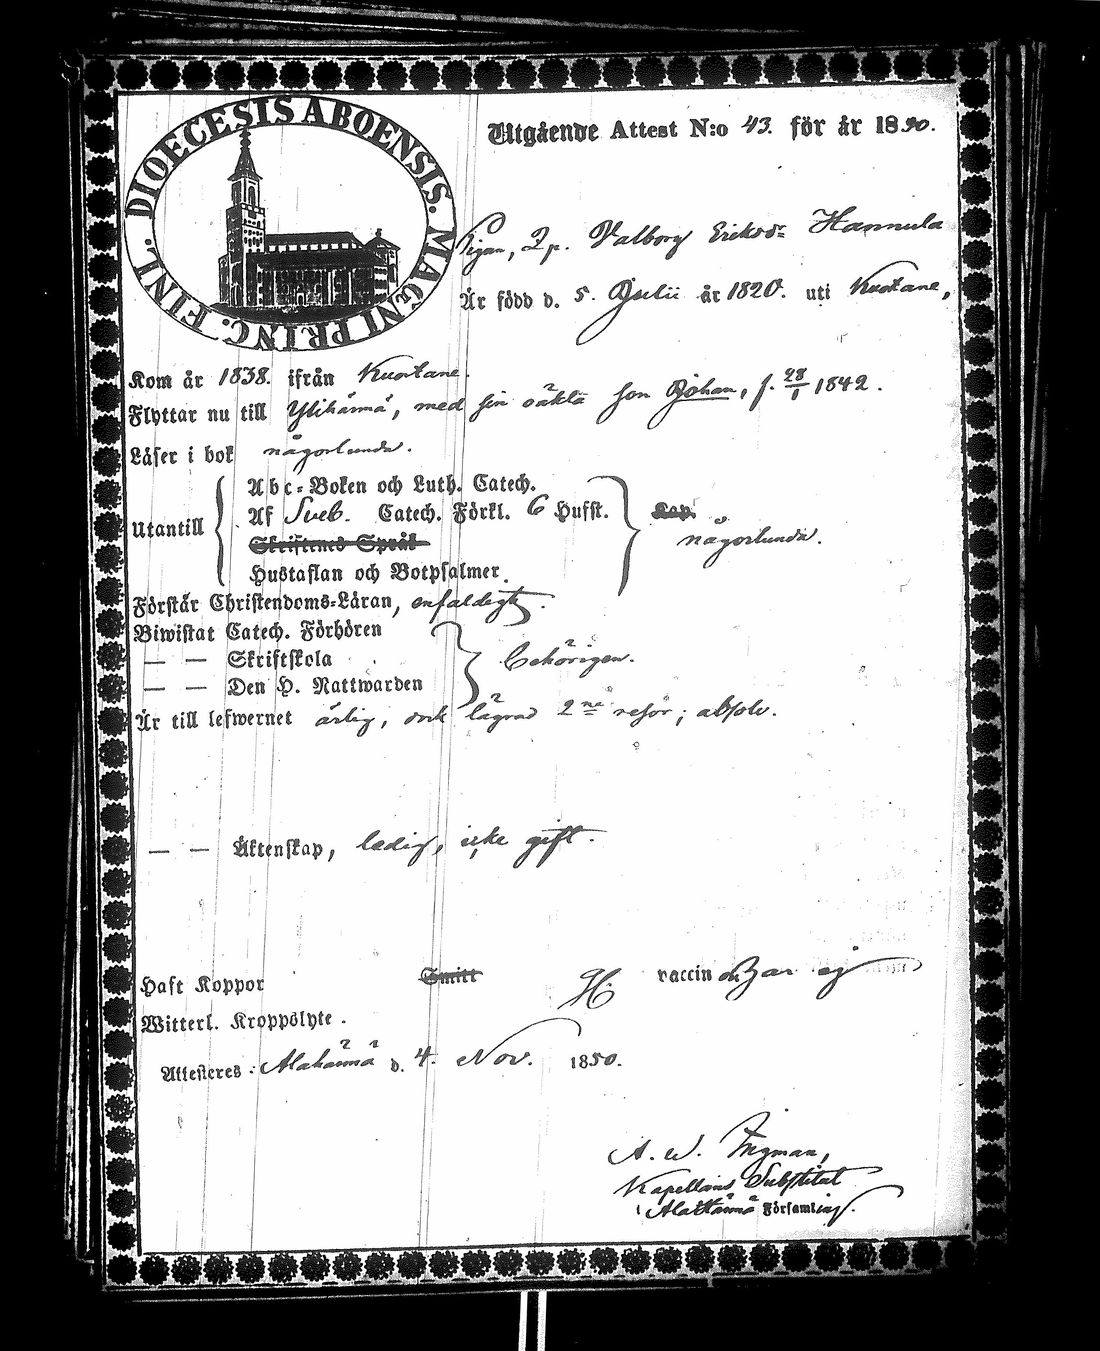 DIOECESIS ABOENSIS. MAGNI PRINC. FINL.
Utgående Attest N:o 43. för år 1850.
Pigan, 2 p. Valborg Eriksdr Hannula
Är född d. 5. Julii år 1820. uti Kuortane,
Kom år 1838. ifrån Kuortane.
Flyttar nu till Ylihärmä, med sin oäkta son Johan, f. 28/1 1842.
Läser i bok någorlunda.
Utantill
Abc-Boken och Luth. Catech.
Af Sveb. Catech. Förkl. 6 Hufst.
Skriftenes Språk
Hustaflan och Botpsalmer.
någorlunda.
Förstår Christendoms-Läran, enfaldigt.
Biwistat Catech. Förhören
— — Skriftskola
— — Den H. Nattwarden
behörigen.
Är till lefwernet ärlig, och lägrad 2ne resor; absolv.
— — Äktenskap, ledig, icke gift.
Haft Koppor Smitt H. vaccin ej
Witterl. Kroppslyte.
Attesteres: Alahärmä d. 4. Nov. 1850.
A. W. Ingman,
Kapellans Substitut
i Alahärmä Församling.